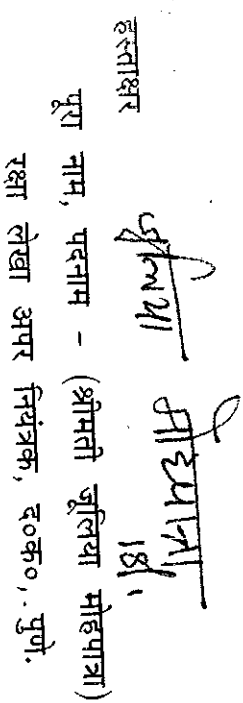 हस्ताक्षर जूलिया मोहपात्रा
18/.
पूरा नाम, पदनाम - (श्रीमती जूलिया मोहपात्रा)
रक्षा लेखा अपर नियंत्रक, द०क०, पुणे.